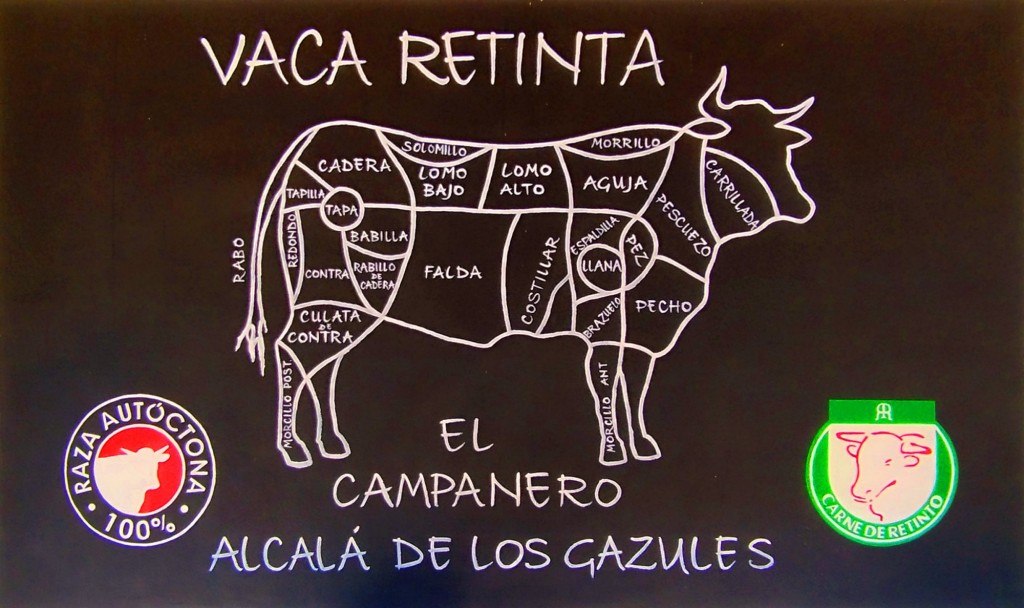 VACA RETINTA
SOLOMILLO
MORRILLO
CADERA
LOMO
BAJO
LOMO
ALTO
AGUJA
CARRILLADA
TAPILLA
TAPA
PESCUEZO
RABO
REDONDO
BABILLA
ESPALDILLA
PEZ
CONTRA
RABILLO
DE
CADERA
FALDA
COSTILLAR
LLANA
CULATA
DE
CONTRA
BRAZUELO
PECHO
MORCILLO POST.
MORCILLO ANT
RAZA AUTÓCTONA
100%
EL
CAMPANERO
ALCALÁ DE LOS GAZULES
CARNE DE RETINTO